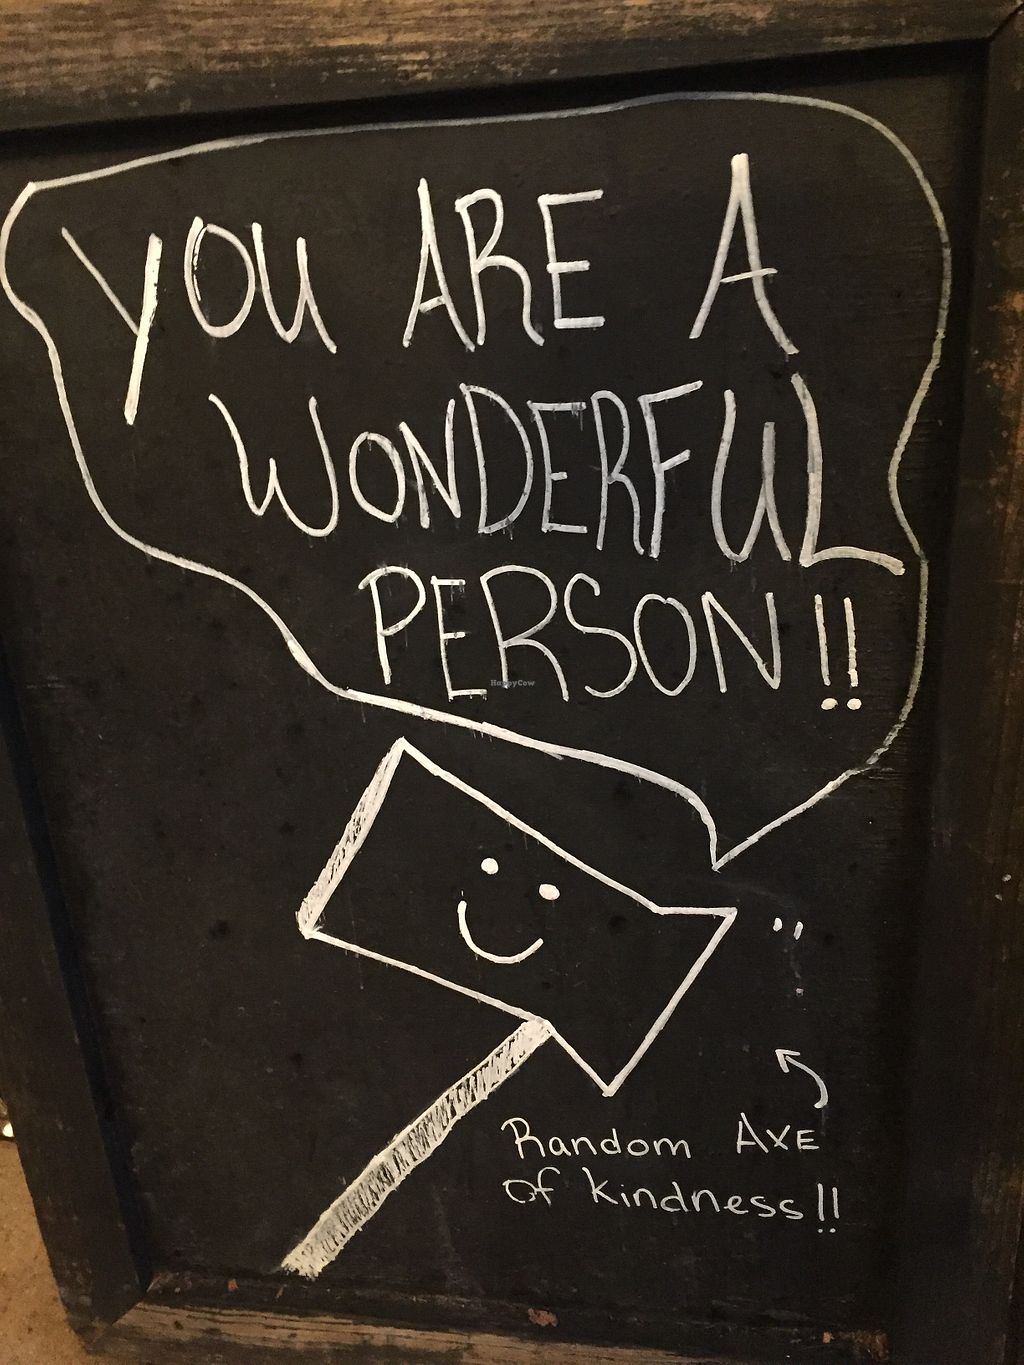 YOU ARE A
WONDERFUL
PERSON!!
HappyCow
Random AXE
of kindness!!